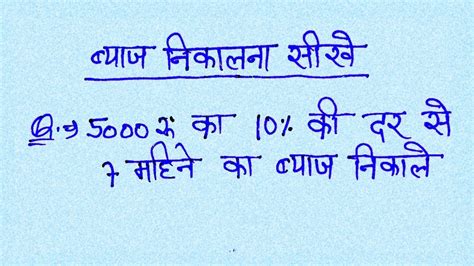 ब्याज निकालना सीखे
Q.→ 5000 रु का 10% की दर से
7 महिने का ब्याज निकाले